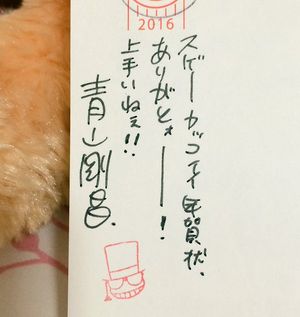 2016
スゲーカッコイイ年賀状、
ありがとォーー！
上手いねェ!!
青山剛昌.